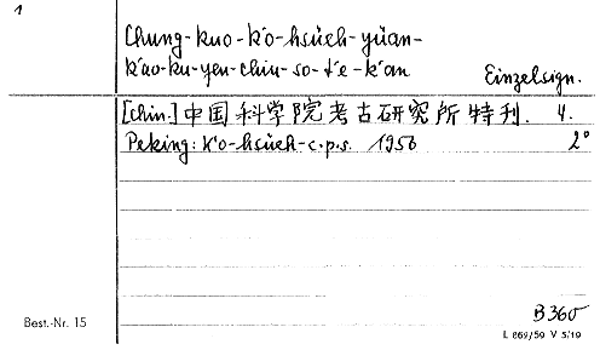 1
Chung-kuo-k'o-hsüeh-yüan-
k'ao-ku-yen-chiu-so-t'e-k'an
Einzelsign.
[Chin.] 中国科学院考古研究所特刊. 4.
Peking: K'o-hsüeh-c.p.s. 1956 2°
B 360
Best.-Nr. 15
L 869/59 V 5/19